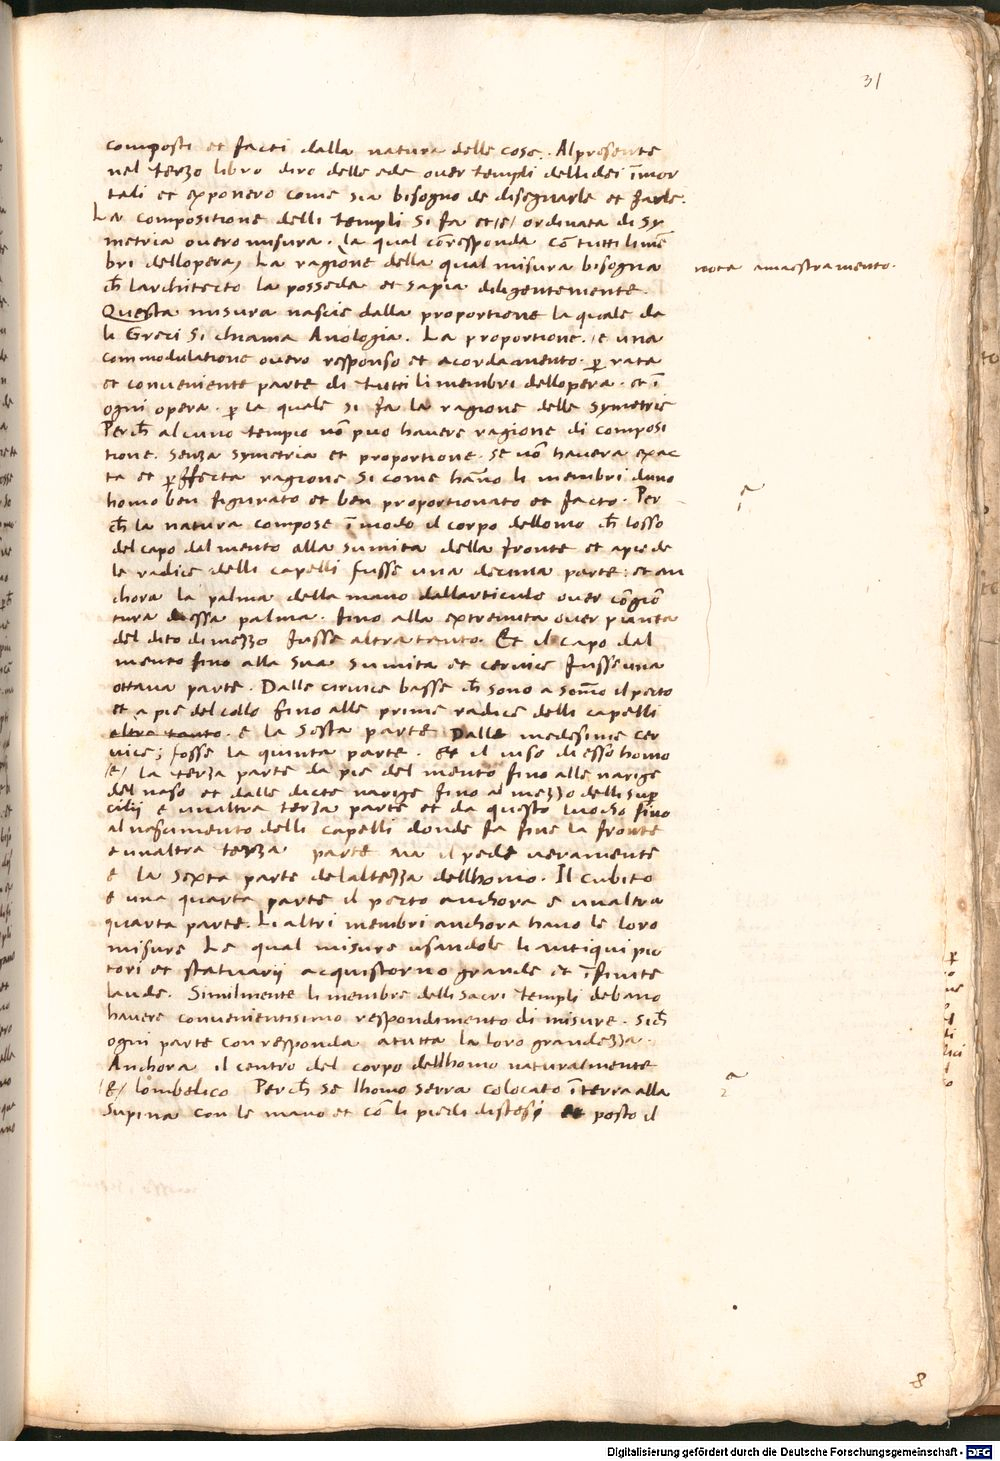 31
composti et facti dalla natura delle cose. Alpresente
nel terzo libro diro delle ede over templi delli dei īmor
tali et exponero come sia bisogno de disegnarle et farle.
La compositione delli templi si fa et /e/ ordinata di sy
metria overo misura. la qual coresponda cō tutti li mē
bri dellopera, La ragione della qual misura bisogna
nota amaestramento.
ch̄ larchitecto la posseda et sapia diligentemente.
Questa misura nascie dalla proportione la quale da
li Greci si chiama Anologia. La proportione. e una
commodulatione overo responso et acordamento. ꝑ rata
et conveniente parte di tutti li membri dellopera. et ī
ogni opera. ꝑ la quale si fa la ragione delle symetrie
Perch̄ alcuno tempio nō puo havere ragione di composi
tione. senza symetria et proportione. se nō havera exac
ta et ꝑffecta ragione si come hāno li membri duno
homo ben figurato et ben proportionato et facto. Per
ch̄ la natura compose ī modo il corpo dellomo ch̄ losso
del capo dal mento alla sumita della fronte et apie de
le radice delli capelli fusse una decima parte: et an
chora la palma della mano dallarticulo over cōgiō
tura dessa palma. fino alla extremita over pianta
del dito di mezzo fusse altratanto. Et il capo dal
mento fino alla sua sumita et cervice fusse una
ottava parte. Dalle cervice basse ch̄ sono a somo il pecto
et a pie del collo fino alle prime radice delli capelli
altra tanto. e la sesta parte Dalle medesime cer
vice; fosse la quinta parte. Et il viso di esso homo
/e/ la terza parte da pie del mento fino alle narige
del naso et dalle dicte narige fino al mezzo delli sup̄
cilij e unaltra terza parte et da questo luocho fino
al nascimento delli capelli donde fa fine la fronte
e unaltra terza parte ma il pede veramente
e la sexta parte de laltezza dellhomo. Il cubito
e una quarta parte il pecto anchora e unaltra
quarta parte. Li altri membri anchora hano le loro
misure Le qual misure usandole li antiqui pic
tori et statuarij acquistorno grande et īfinite
laude. Similmente li membre delli sacri templi debano
havere convenientissimo respondimento di misure. Sich̄
ogni parte corresponda a tutta la loro grandezza.
Anchora il centro del corpo dellhomo naturalmente
/e/ lombelico Perch̄ se lhomo serra colocato ī terra alla
supina con le mano et cō li piedi distesi et posto il
1
2
8
Digitalisierung gefördert durch die Deutsche Forschungsgemeinschaft - DFG